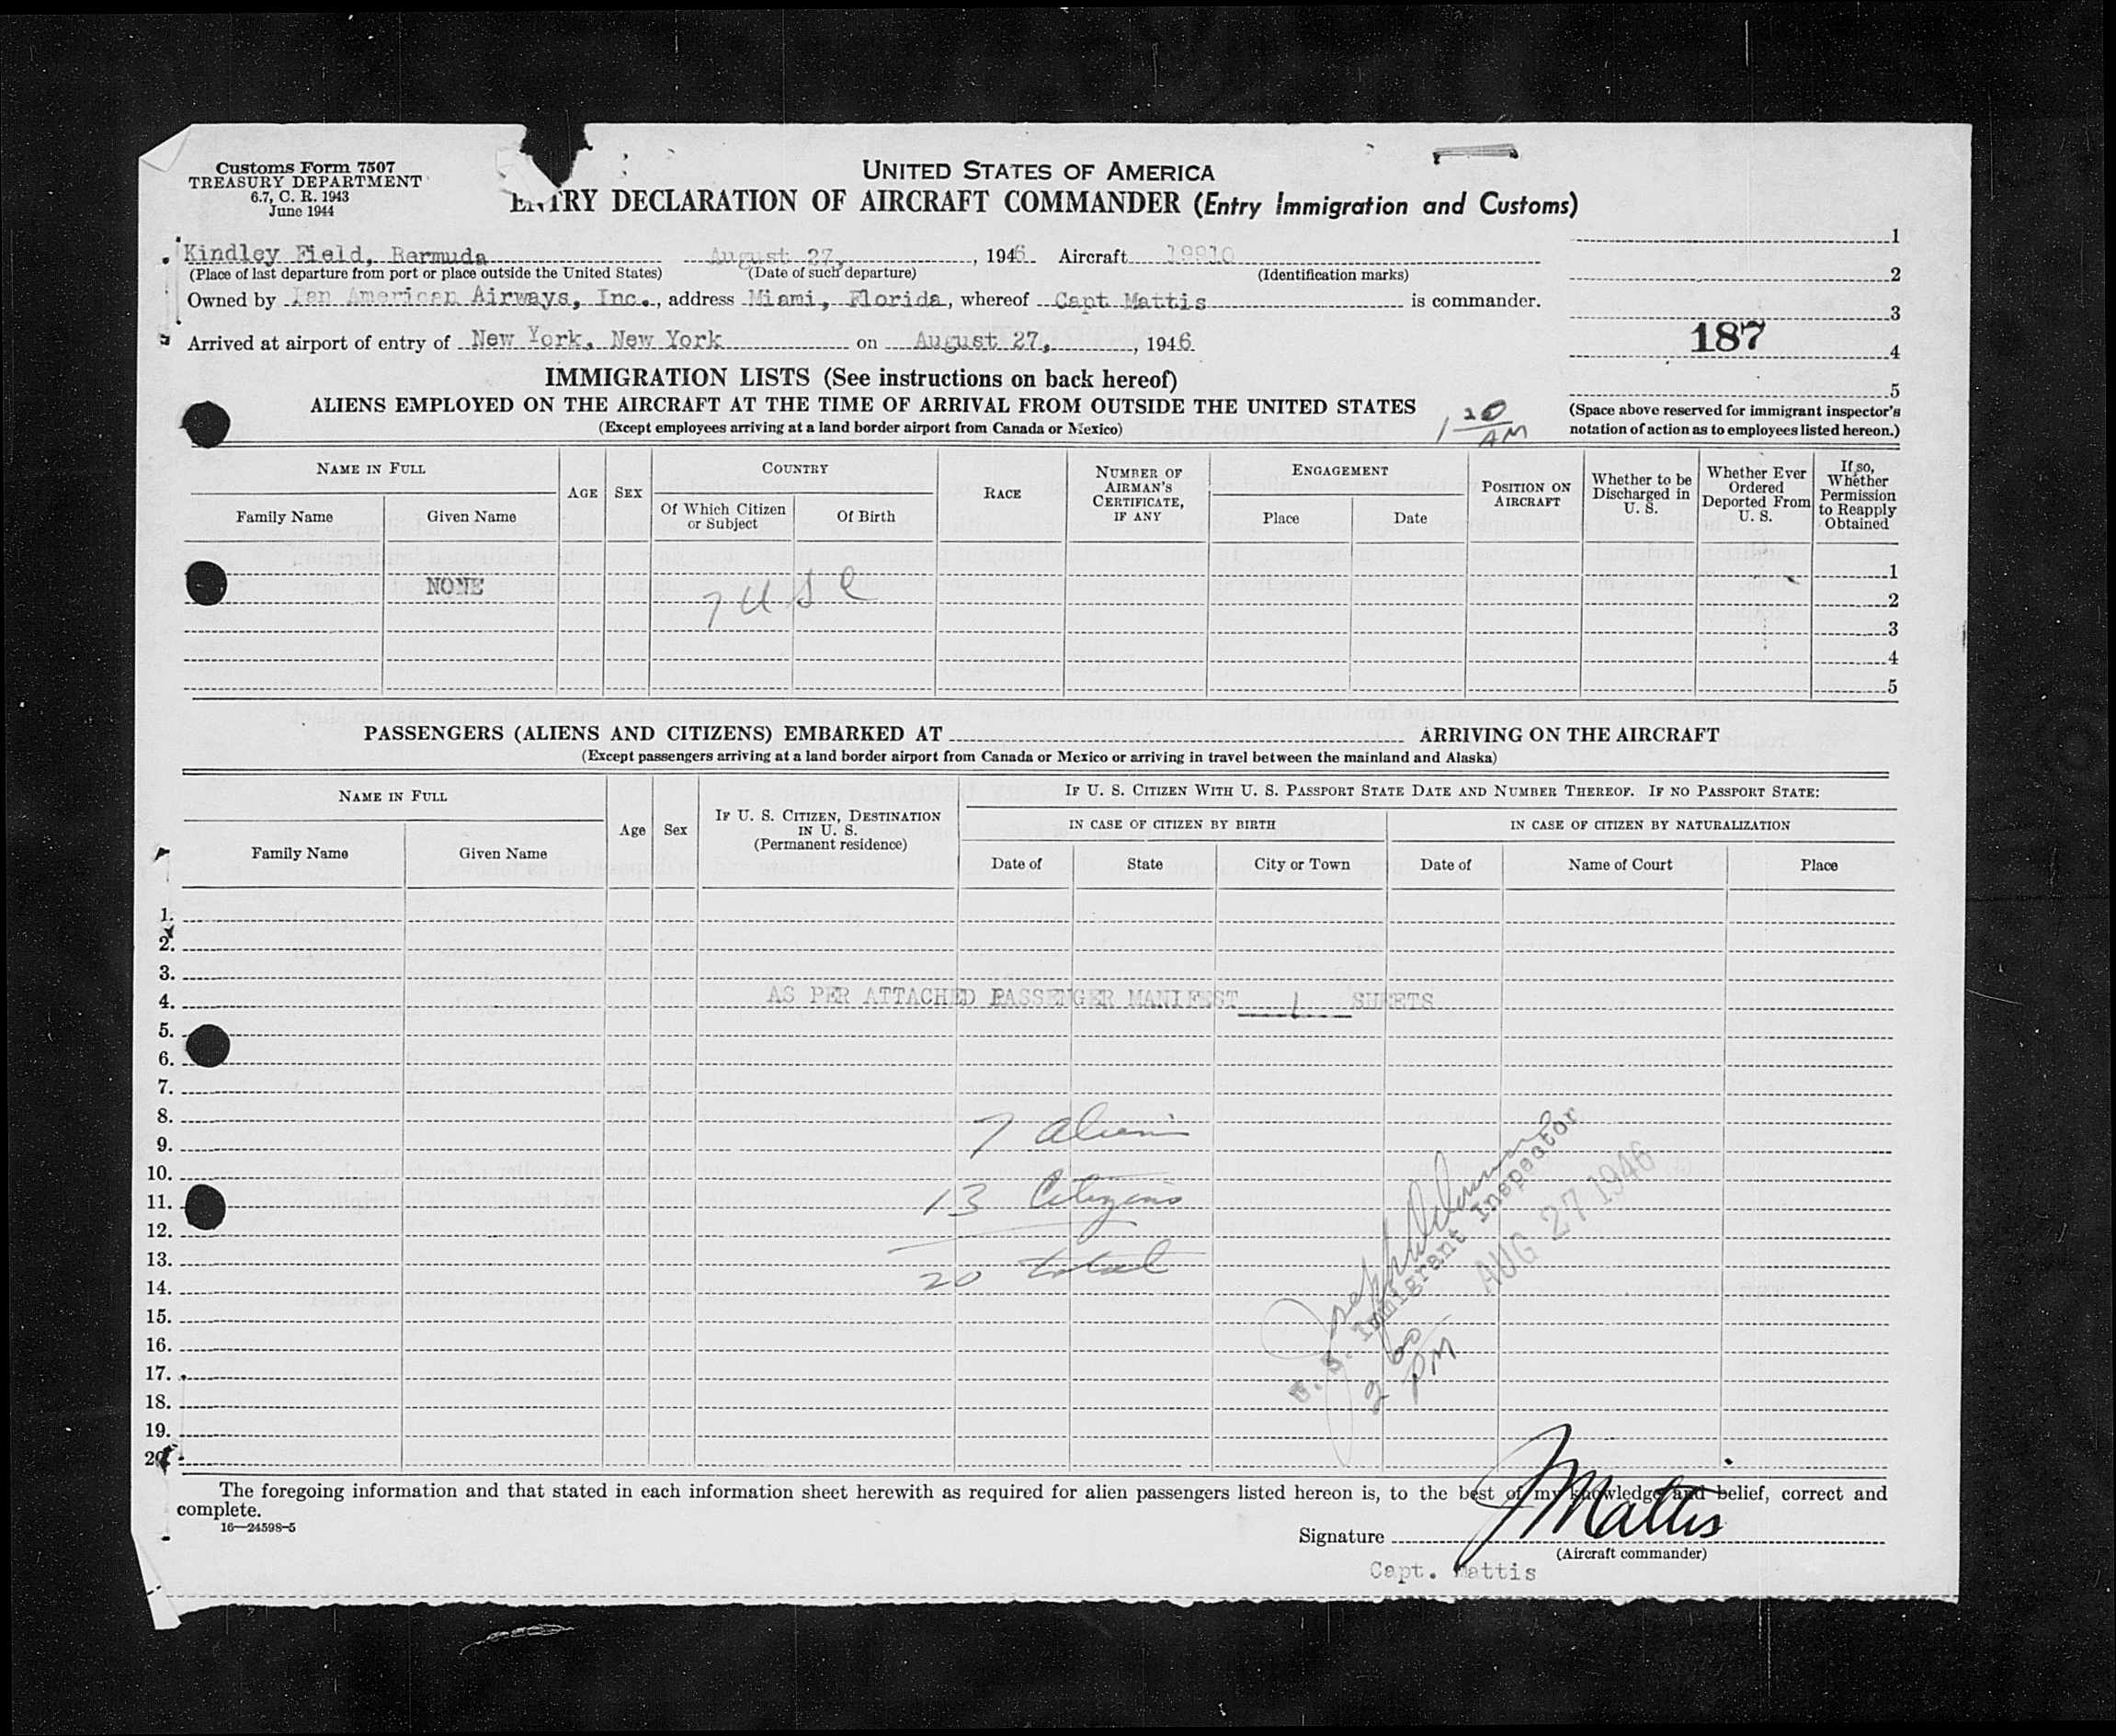 Customs Form 7507
TREASURY DEPARTMENT
6.7, C. R. 1943
June 1944
UNITED STATES OF AMERICA
ENTRY DECLARATION OF AIRCRAFT COMMANDER (Entry Immigration and Customs)
Kindley Field, Bermuda August 27, , 1946 Aircraft 19910
(Place of last departure from port or place outside the United States) (Date of such departure) (Identification marks)
Owned by Pan American Airways, Inc., address Miami, Florida, whereof Capt Mattis is commander.
Arrived at airport of entry of New York, New York on August 27, , 1946
1
2
3
187
4
5
(Space above reserved for immigrant inspector's
notation of action as to employees listed hereon.)
IMMIGRATION LISTS (See instructions on back hereof)
ALIENS EMPLOYED ON THE AIRCRAFT AT THE TIME OF ARRIVAL FROM OUTSIDE THE UNITED STATES
(Except employees arriving at a land border airport from Canada or Mexico)
1 20 AM
NAME IN FULL
Family Name
Given Name
AGE
SEX
COUNTRY
Of Which Citizen
or Subject
Of Birth
RACE
NUMBER OF
AIRMAN'S
CERTIFICATE,
IF ANY
ENGAGEMENT
Place
Date
POSITION ON
AIRCRAFT
Whether to be
Discharged in
U. S.
Whether Ever
Ordered
Deported From
U. S.
If so,
Whether
Permission
to Reapply
Obtained
1
NONE
7 U S C
2
3
4
5
PASSENGERS (ALIENS AND CITIZENS) EMBARKED AT ARRIVING ON THE AIRCRAFT
(Except passengers arriving at a land border airport from Canada or Mexico or arriving in travel between the mainland and Alaska)
NAME IN FULL
Family Name
Given Name
Age
Sex
IF U. S. CITIZEN, DESTINATION
IN U. S.
(Permanent residence)
IF U. S. CITIZEN WITH U. S. PASSPORT STATE DATE AND NUMBER THEREOF. IF NO PASSPORT STATE:
IN CASE OF CITIZEN BY BIRTH
IN CASE OF CITIZEN BY NATURALIZATION
Date of
State
City or Town
Date of
Name of Court
Place
1.
2.
3.
4. AS PER ATTACHED PASSENGER MANIFEST 1 SHEETS
5.
6.
7.
8.
7 Aliens
9.
10.
11.
13 Citizens
12.
13.
20 total
14.
15.
16.
17.
18.
19.
20.
U. S. Immigrant Inspector
AUG 27 1946
2 00 PM
The foregoing information and that stated in each information sheet herewith as required for alien passengers listed hereon is, to the best of my knowledge and belief, correct and
complete.
16—24598-5
Signature J Mattis
(Aircraft commander)
Capt. Mattis